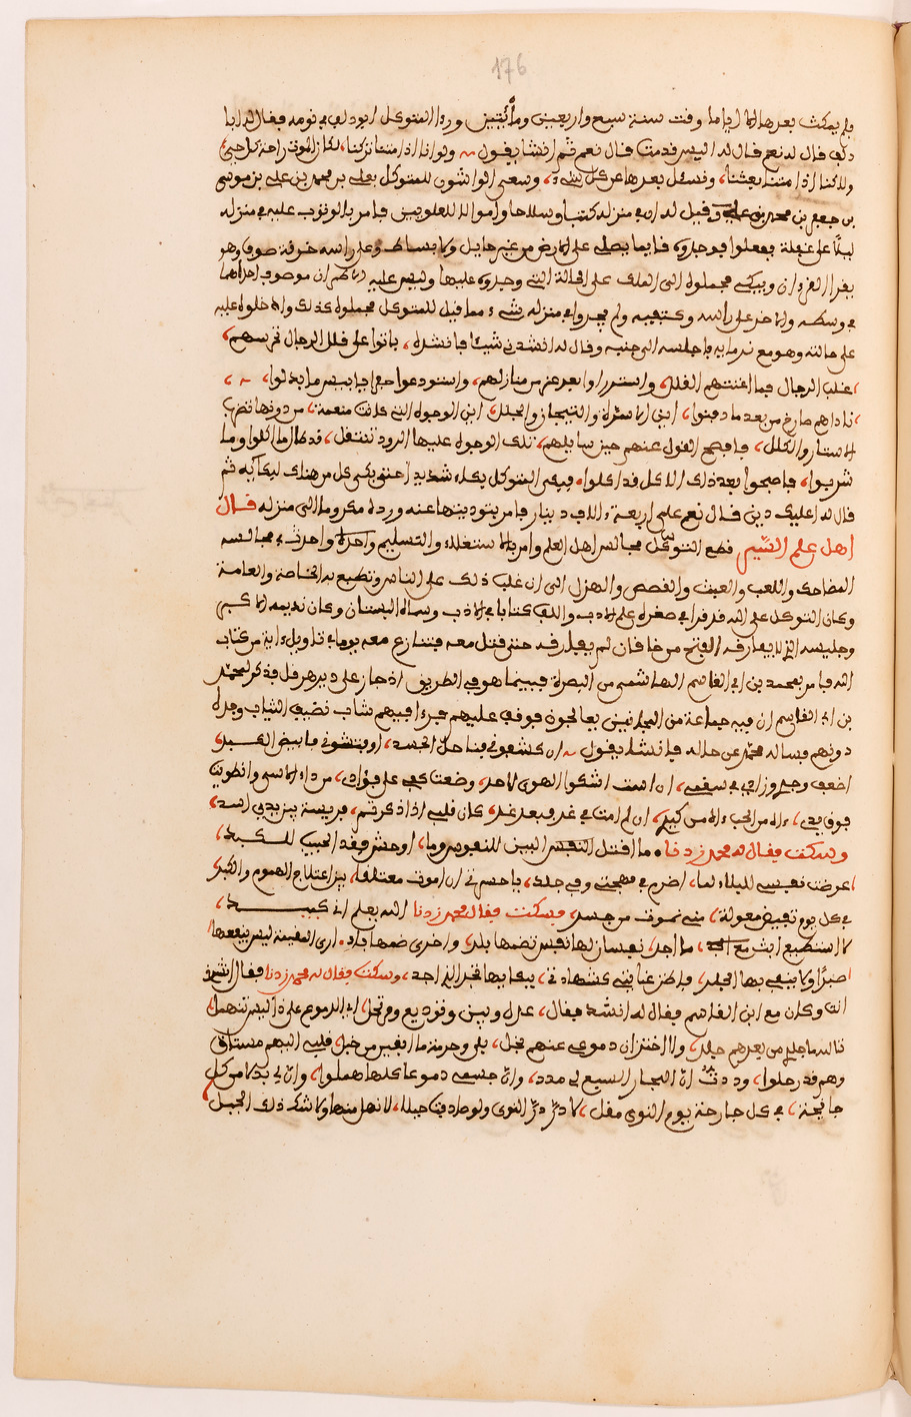 176
فلم يمكث بعدها الا اياما وقت سنة سبع واربعين ومأتين ورءا المتوكل ابو دلف في نومه فقال له ابا
دلف قال له نعم قال له اليس قد مت قال نعم ثم انشا يقول ولو انا اذا متنا تركنا، لكان الموت راحة كل حي،
ولاكنا اذا متنا بعثنا، ونسئل بعدها عن كل شيء، وسعى الواشون للمتوكل بعلي بن محمد بن علي بن موسى
بن جعفر بن محمد بن علي وقيل له ان في منزله كتبا وسلاحا واموالا للعلويين فامر بالوثوب عليه في منزله
ليلا على غفلة ففعلوا فوجدوه قايما يصلي على الارض من غير حايل ولا بساط وعلى راسه خرقة صوف وهو
يقرا القرءان ويبكي فحملوه الى الملك على الحالة التي وجدوه عليها وليس عليه الا طمران من صوف احداهما
في وسطه والاخر على راسه وكتفيه ولم يجدوا في منزله شيء مما قيل للمتوكل فحملوه كذلك وادخلوه عليه
على حالته وهو مع ندمايه فاجلسه الى جنبه وقال له انشدني شيئا فانشده، باتوا على قلل الرجال تحرسهم،
غلب الرجال فما اغنتهم القلل، واستنزلوا بعد عز من منازلهم، واستودعوا حفرا يا بيس ما نزلوا،
ناداهم صارخ من بعد ما دفنوا، اين الاسرة والتيجان والحلل، اين الوجوه التي كانت منعمة، من دونها تضرب
الاستار والكلل، فافصح القول عنهم حين سايلهم، تلك الوجوه عليها الدود تنتقل، قد طال ما اكلوا وما
شربوا، فاصبحوا بعد ذلك الاكل قد اكلوا، فبكى المتوكل بكاء شديدا حتى بكى كل من هناك لبكآيه ثم
قال له اعليك دين قال نعم علي اربعة ءالاف دينار فامر بتوديتها عنه ورده مكرما الى منزله قال
اهل علم السيم قطع المتوكل مجالس اهل العلم وامر بالاستغلاء والتسليم واحدث مجالسه
المضاحك واللعب والعبث والقصص والهزل الى ان غلب ذلك على الناس وتطبع به الخاصة والعامة
وكان المتوكل على الله قد قرا في صغره علم الادب والف كتابا في الادب وسماه البستان وكان نديمه الاكبر
وجليسه الذي لا يفارقه الفتح بن خاقان لم يفارقه حتى قتل معه فتنازع معه يوما في تاويل ءاية من كتاب
الله فامر بمحمد بن ابي القاسم الهاشمي من البصرة فبينما هو في الطريق اذ جاز على دير هرقل فذكر لمحمد
بن ابي القاسم ان فيه جماعة من المجانين يعالجون فوقف عليهم فرءا فيهم شاب نضيف الثياب وجده
دونهم فساله محمد عن حاله فانشا يقول ان تكشفوني نحل الجسد، او وتنشوني ما بيض الكبد
اضعف وجدي وزاد في سقمي، ان لست اشكوا الهوى لاحد، وضعت كفي على فؤادي، من داء الاسى وانطويت
فوق يدي، ءاه من الحب ءاه من كبدي، ان لم امت في غد فبعد غد، كان قلبي اذا ذكرتم، فريسة بين يدي اسد،
وسكت فقال له محمد زدنا، ما اقتل البين للنفوس وما، اوحش فقد الحبيب للكبد،
عرضت نفسي للبلاء لما، اضرم في مهجتي وفي جلد، يا حسرتي ان اموت معتلقا، بين اعتلاج الهموم والكبد
في كل يوم تفيض معولة، عيني تموت من جسد، فسكت فقال محمد زدنا الله يعلم اني كمد،
لا استطيع ابث مع اجد، ما اجد، نفسان لي نفس تضمها بلد، واخرى ضمها بلد، ارى المقيمة ليس ينفعها
صبرا ولا يبقى بها الجلد، واظن غايبتي كشاهدتي، بمكانها تجد الذي اجد، وسكت فقال له محمد زدنا فقال انشدني
انت وكان مع ابن القاسم فقال له انشد فقال، عذل وبين وتوديع ومرتحل، اي الدموع على ذا ليس تنهمل
تالله ما جلدي من بعدهم جلد، ولا اختزان دموعي عنهم بخل، بلى وحرمة ما ابقين من خبل، قلبي اليهم مستاق
وهم قد رحلوا، وددت ان البحار السبع لي مدد، وان جسمي دموعا كلها هملوا، وان لي بدلا من كل
جانحة، في كل جارحة يوم النوى مقل، لا در در النوى ولو صادفت جبلا، لانهل منها ولا شك ذلك الجبل